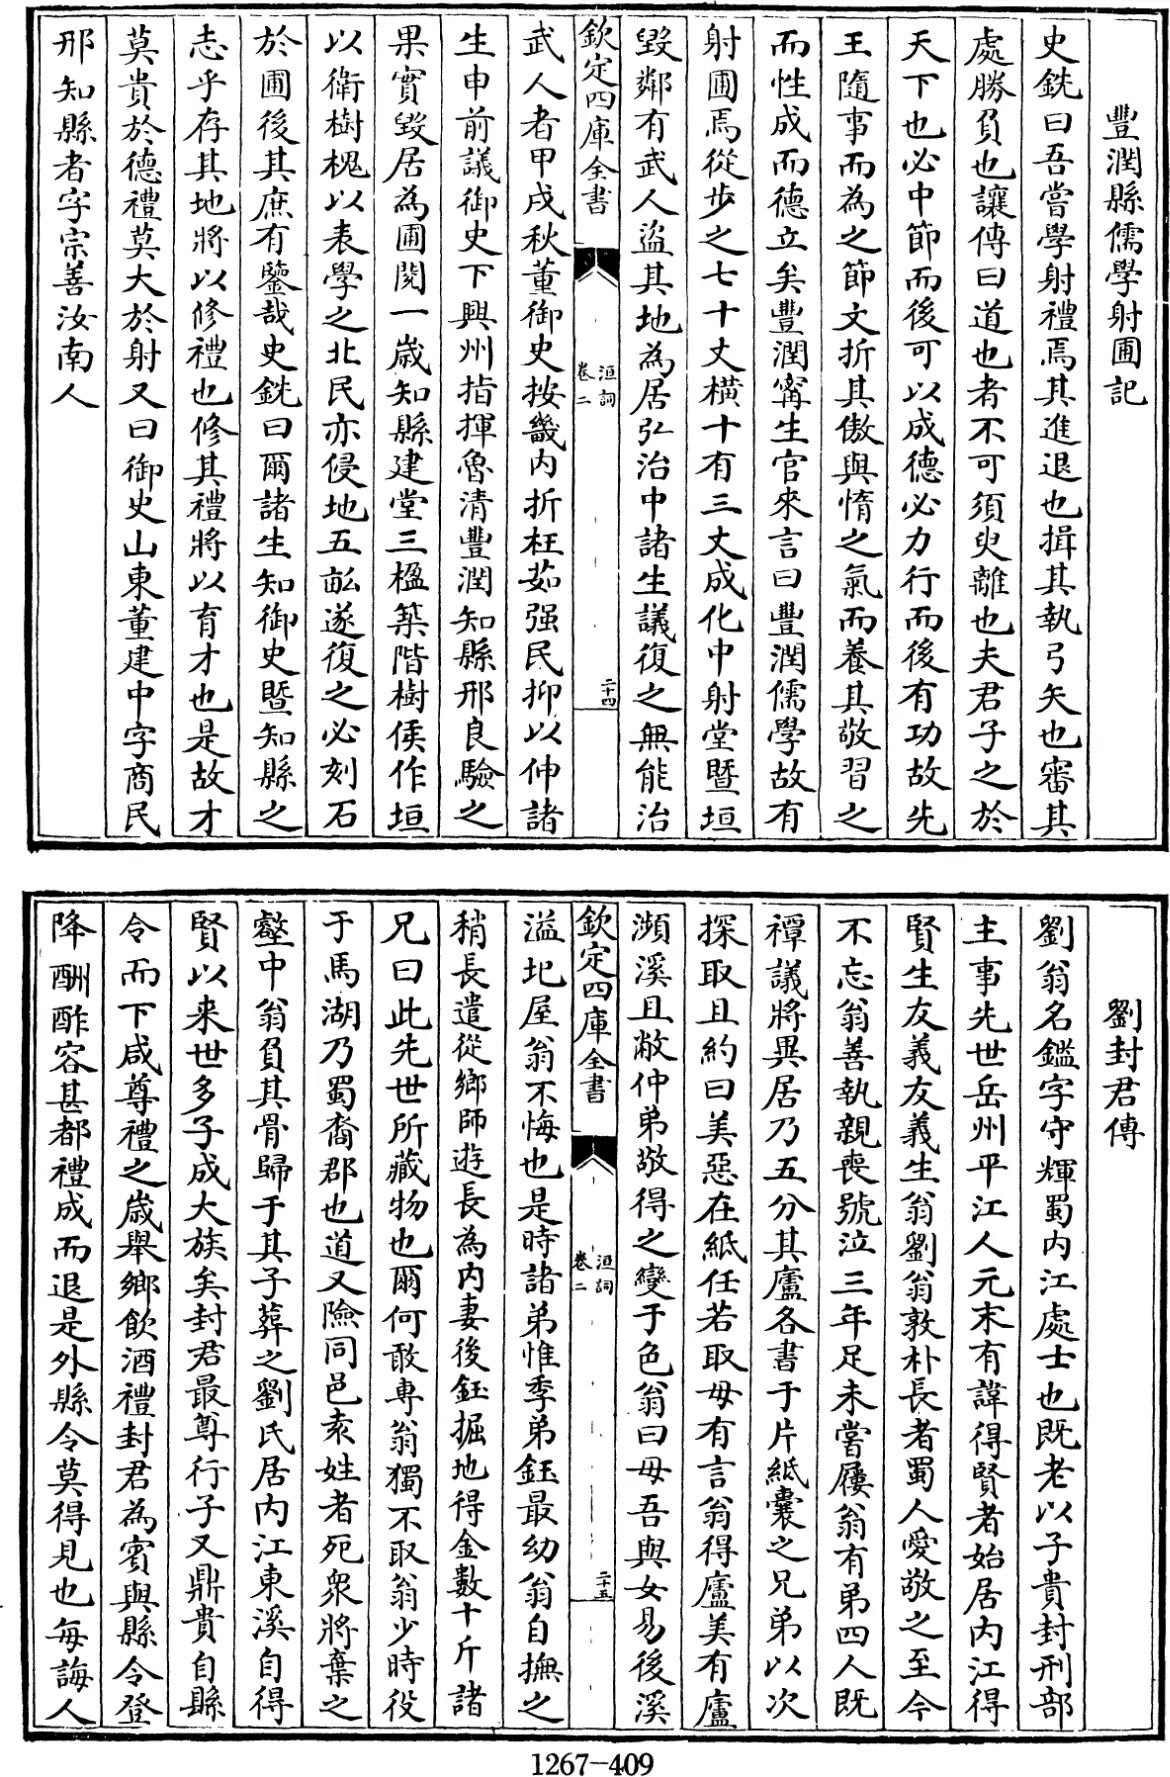 豐潤縣儒學射圃記
史銑曰吾嘗學射禮焉其進退也揖其執弓矢也審其
處勝負也讓傳曰道也者不可須臾離也夫君子之於
天下也必中節而後可以成德必力行而後有功故先
王隨事而為之節文折其傲與惰之氣而養其敬習之
而性成而德立矣豐潤甯生官來言曰豐潤儒學故有
射圃焉從步之七十丈橫十有三丈成化中射堂暨垣
毀鄰有武人盜其地為居弘治中諸生議復之無能治
欽定四庫全書
洹詞
卷二
二十四
武人者甲戌秋董御史按畿内折枉茹强民抑以伸諸
生申前議御史下興州指揮魯清豐潤知縣邢良驗之
果實毀居為圃閱一嵗知縣建堂三楹築階樹侯作垣
以衛樹槐以表學之北民亦侵地五畝遂復之必刻石
於圃後其庶有鑒哉史銑曰爾諸生知御史暨知縣之
志乎存其地將以修禮也修其禮將以育才也是故才
莫貴於德禮莫大於射又曰御史山東董建中字商民
邢知縣者字宗善汝南人
劉封君傳
劉翁名鑑字守輝蜀内江處士也既老以子貴封刑部
主事先世岳州平江人元末有諱得賢者始居内江得
賢生友義友義生翁劉翁敦朴長者蜀人愛敬之至今
不忘翁善執親喪號泣三年足未嘗屨翁有弟四人既
禫議將異居乃五分其廬各書于片紙囊之兄弟以次
探取且約曰美惡在紙任若取毋有言翁得廬美有廬
瀕溪且敝仲弟敬得之變于色翁曰毋吾與女易後溪
欽定四庫全書
洹詞
卷二
二十五
溢圯屋翁不悔也是時諸弟惟季弟鈺最幼翁自撫之
稍長遣從鄉師遊長為内妻後鈺掘地得金數十斤諸
兄曰此先世所藏物也爾何敢専翁獨不取翁少時役
于馬湖乃蜀裔郡也道又險同邑袁姓者死衆將棄之
壑中翁負其骨歸于其子葬之劉氏居内江東溪自得
賢以来世多子成大族矣封君最尊行子又鼎貴自縣
令而下咸尊禮之嵗舉鄉飲酒禮封君為賓與縣令登
降酬酢容甚都禮成而退是外縣令莫得見也每誨人
1267—409